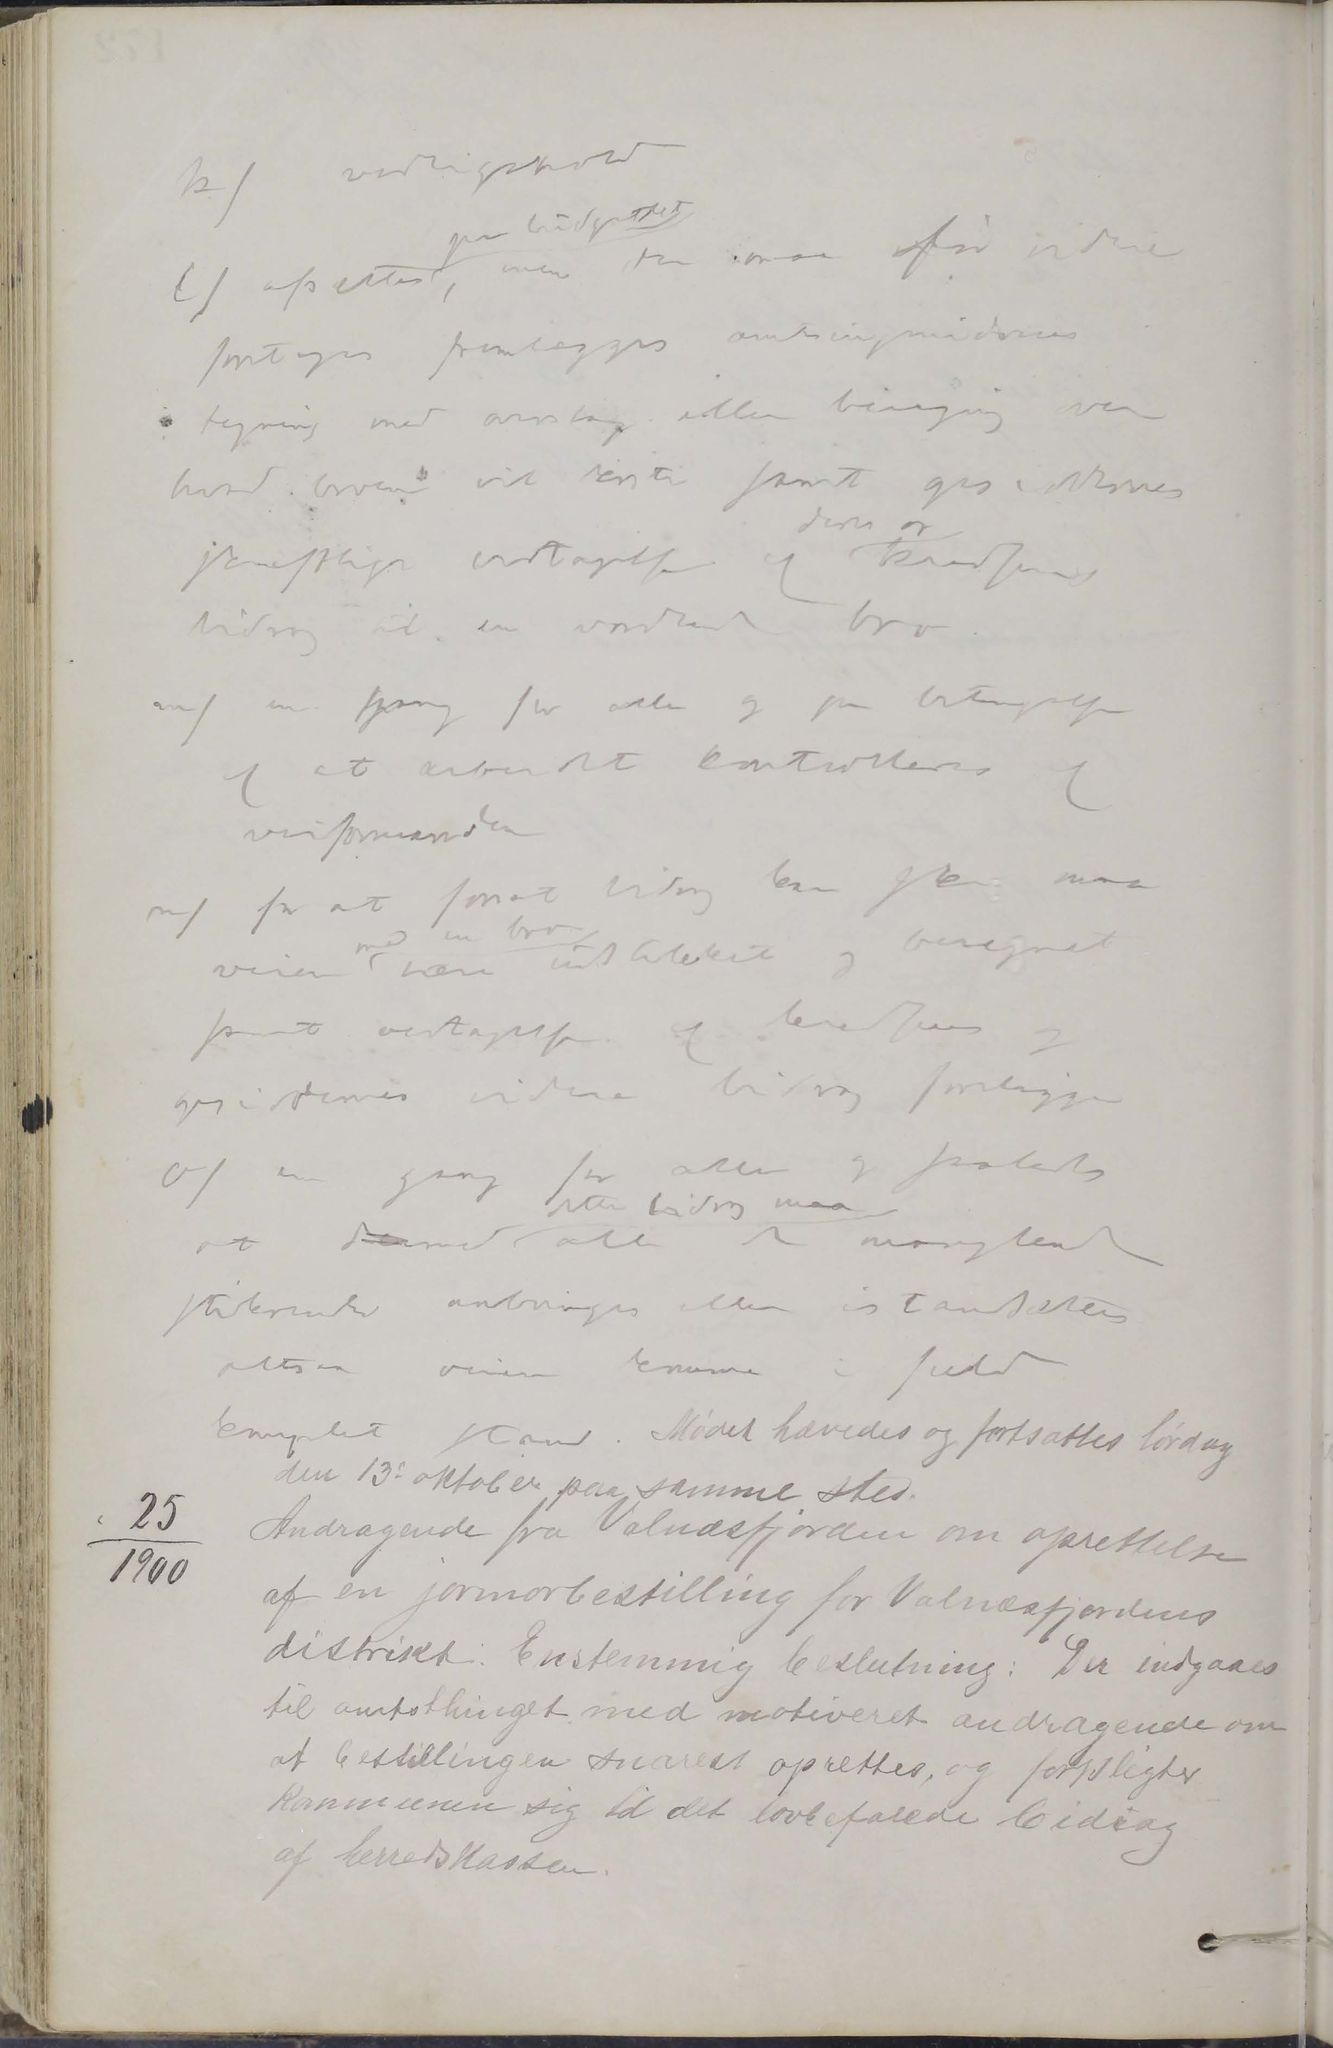 k/ vedligehold
paa budgettet
l/ afsættes, men der maa før videre
foretages fremlægges amtsingeniørens
tegning med overslag eller beregning over
hvad broen vil koste samt opsiddernes
deres or
skriftlige vedtagelse af kredsens
bidrag til en vordende bro.
m/ en gang for alle og paa betingelse
af at arbeidet kontrolleres af
veiformanden
n/ for at forat bidrag kan ske maa
med en bro
veien være udstukket og beregnet
samt vedtagelse af kredsens og
opsiddernes videre bidrag foreligge
o/ en gang for alle og saaledes
dette bidrag maa
at dermed alle de manglende
stikrender anbringes eller istandsættes
altsaa veien komme i fuld
komplet stand. Mødet hævedes og fortsattes lørdag
den 13: oktober paa samme sted.
25
1900
Andragende fra Valnæsfjorden om oprettelse
af en jormorbestilling for Valnæsfjordens
distrikt. Enstemmig beslutning: Der indgaaes
til amtsthinget med motiveret andragende om
at bestillingen snarest oprettes, og forpligter
Kommunen sig til det lovbefalede bidrag
af herredskassen.